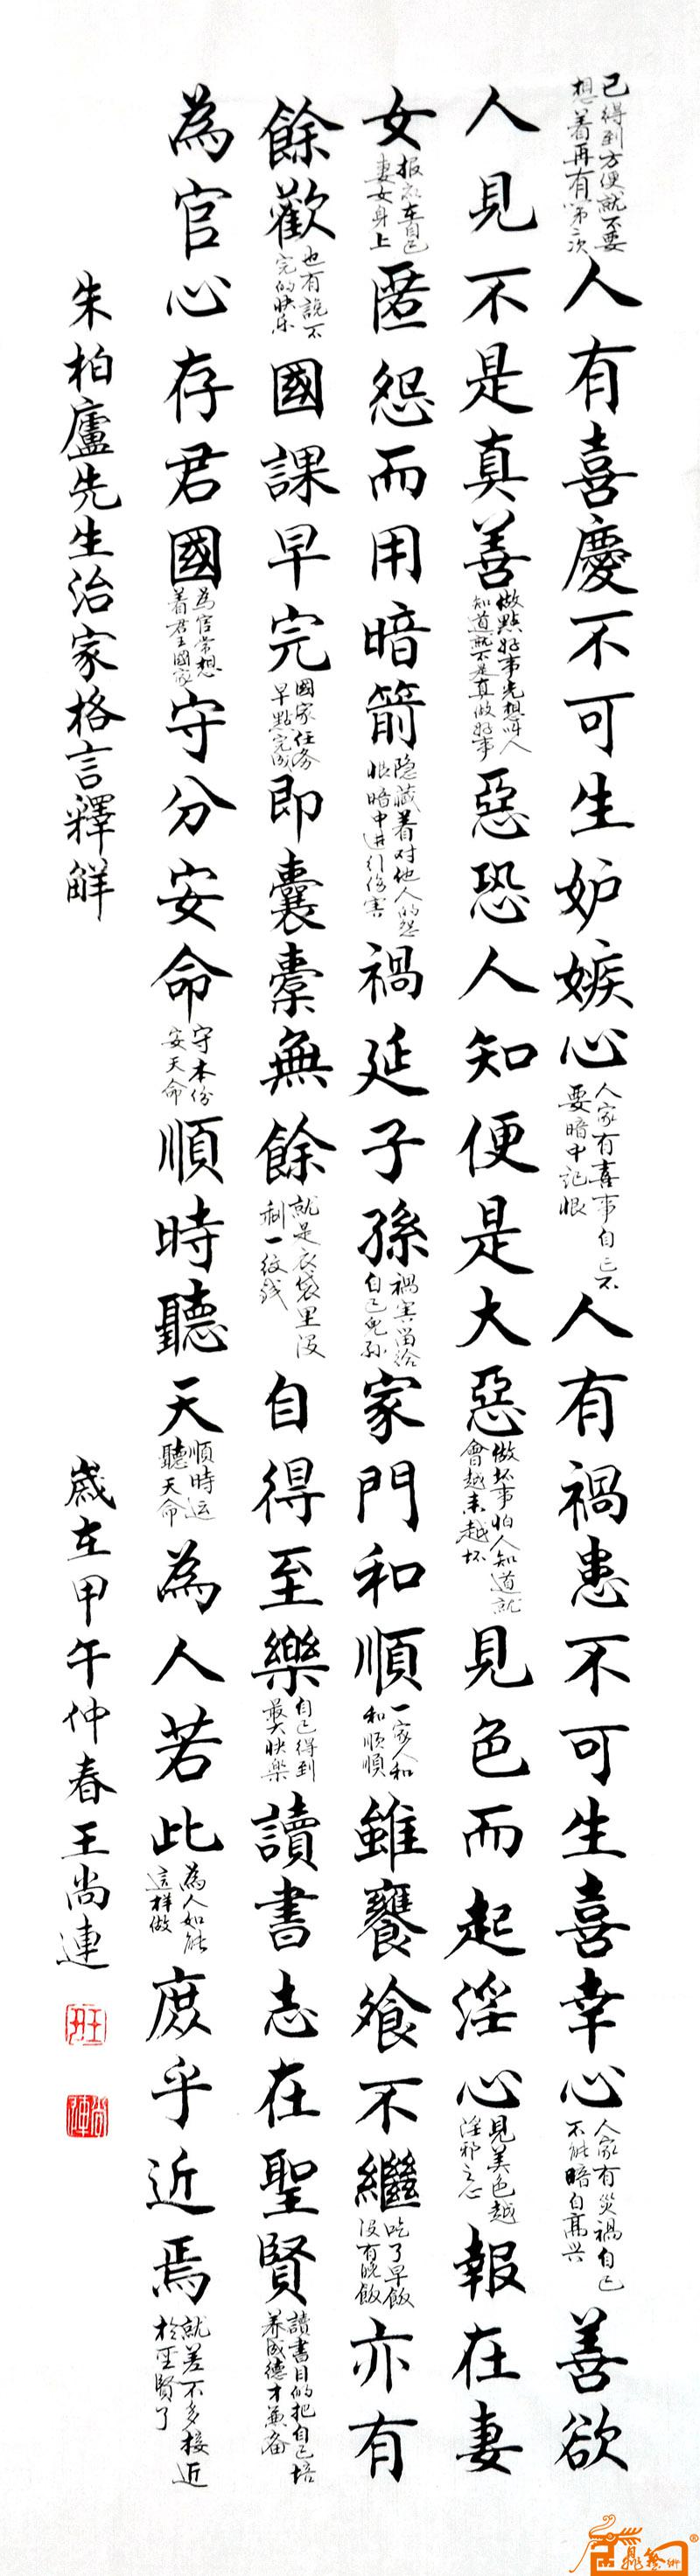 已得到方便就不要想着再有第二次人有喜慶不可生妒嫉心人家有喜事自己不要暗中記恨人有禍患不可生喜幸心人家有災禍自己不能暗自高兴善欲
人見不是真善做點好事先想叫人知道就不是真做好事惡恐人知便是大惡做坏事怕人知道就會越来越坏見色而起淫心見美色越淫邪之心報在妻
女报應在自己妻女身上匿怨而用暗箭隐藏着对他人的怨恨暗中进行伤害禍延子孫禍害留给自己兒孙家門和順一家人和和順順雖饔飧不繼吃了早飯没有晚飯亦有
餘歡也有說不完的快乐國課早完國家任务早點完成即囊橐無餘就是衣袋里没剩一纹钱自得至樂自己得到最大快樂讀書志在聖賢讀書目的把自己培养成德才兼备
為官心存君國為官常想着君王國家守分安命守本份安天命順時聽天順時运聽天命為人若此為人如能這样做庶乎近焉就差不多接近於聖賢了
朱柏廬先生治家格言釋鮮
歲在甲午仲春王尚連